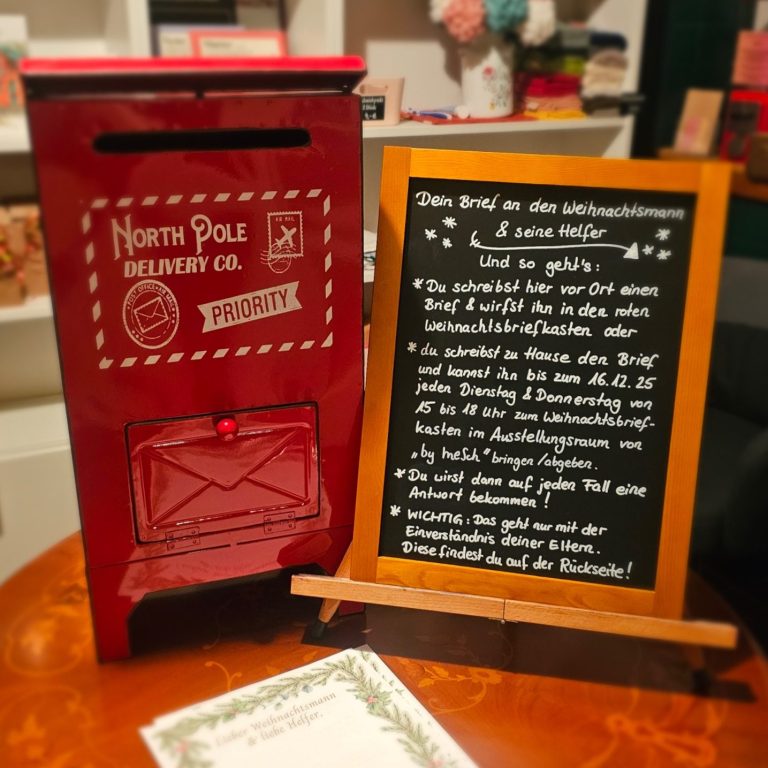 NORTH POLE
DELIVERY CO.
AIR MAIL
POST OFFICE AIR MAIL
PRIORITY
Dein Brief an den Weihnachtsmann
& seine Helfer
Und so geht's:
* Du schreibst hier vor Ort einen
Brief & wirfst ihn in den roten
Weihnachtsbriefkasten oder
* du schreibst zu Hause den Brief
und kannst ihn bis zum 16.12.25
jeden Dienstag & Donnerstag von
15 bis 18 Uhr zum Weihnachtsbrief-
kasten im Ausstellungsraum von
„by meSch" bringen/abgeben.
* Du wirst dann auf jeden Fall eine
Antwort bekommen!
* WICHTIG: Das geht nur mit der
Einverständnis deiner Eltern.
Diese findest du auf der Rückseite!
Lieber Weihnachtsmann
& liebe Helfer,